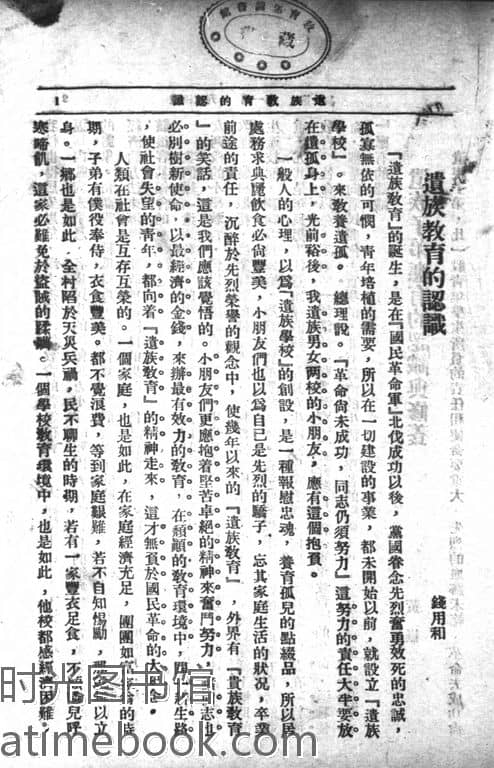 遺族教育的認識
1
遺族教育的認識
錢用和
『遺族教育』的誕生，是在『國民革命軍』北伐成功以後，黨國眷念先烈奮勇效死的忠誠，
孤寡無依的可憫，青年培植的需要，所以在一切建設的事業，都未開始以前，就設立『遺族
學校』。來敎養遺孤。　總理說。『革命尙未成功，同志仍須努力』這努力的責任大半要放
在遺孤身上，光前裕後，我遺族男女兩校的小朋友，應有這個抱負。
一般人的心理，以爲『遺族學校』的創設，是一種報慰忠魂，養育孤兒的點綴品，所以居
處務求典麗飲食必尙豐美，小朋友們也以爲自己是先烈的驕子，忘其家庭生活的狀況，卒業
前途的責任，沉醉於先烈榮譽的觀念中，使幾年以來的『遺族敎育』，外界有『貴族敎育
』的笑話，這是我們應該覺悟的。小朋友們更應抱着堅苦卓絕的精神來奮鬥努力，同志也
必別樹新使命，以最經濟的金錢，來辦最有效力的敎育，在頹顚的敎育環境中，開新生路
，使社會失望的靑年，都向着『遺族敎育』的精神走來，這才無負於國民革命的
人類在社會是互存互榮的。一個家庭，也是如此，在家庭經濟充足，團團如意的時
期，子弟有僕役奉侍，衣食豐美。都不覺浪費，等到家庭艱難，若不自知惕勵，以立
身。一鄉也是如此，全村陷於天災兵禍，民不聊生的時期，若有一家豐衣足食，不兒呼
寒啼飢，這家必難免於盜賊的蹂躪。一個學校敎育環境中，也是如此，他校都感經濟困難。
时光图书馆
atimebook.com